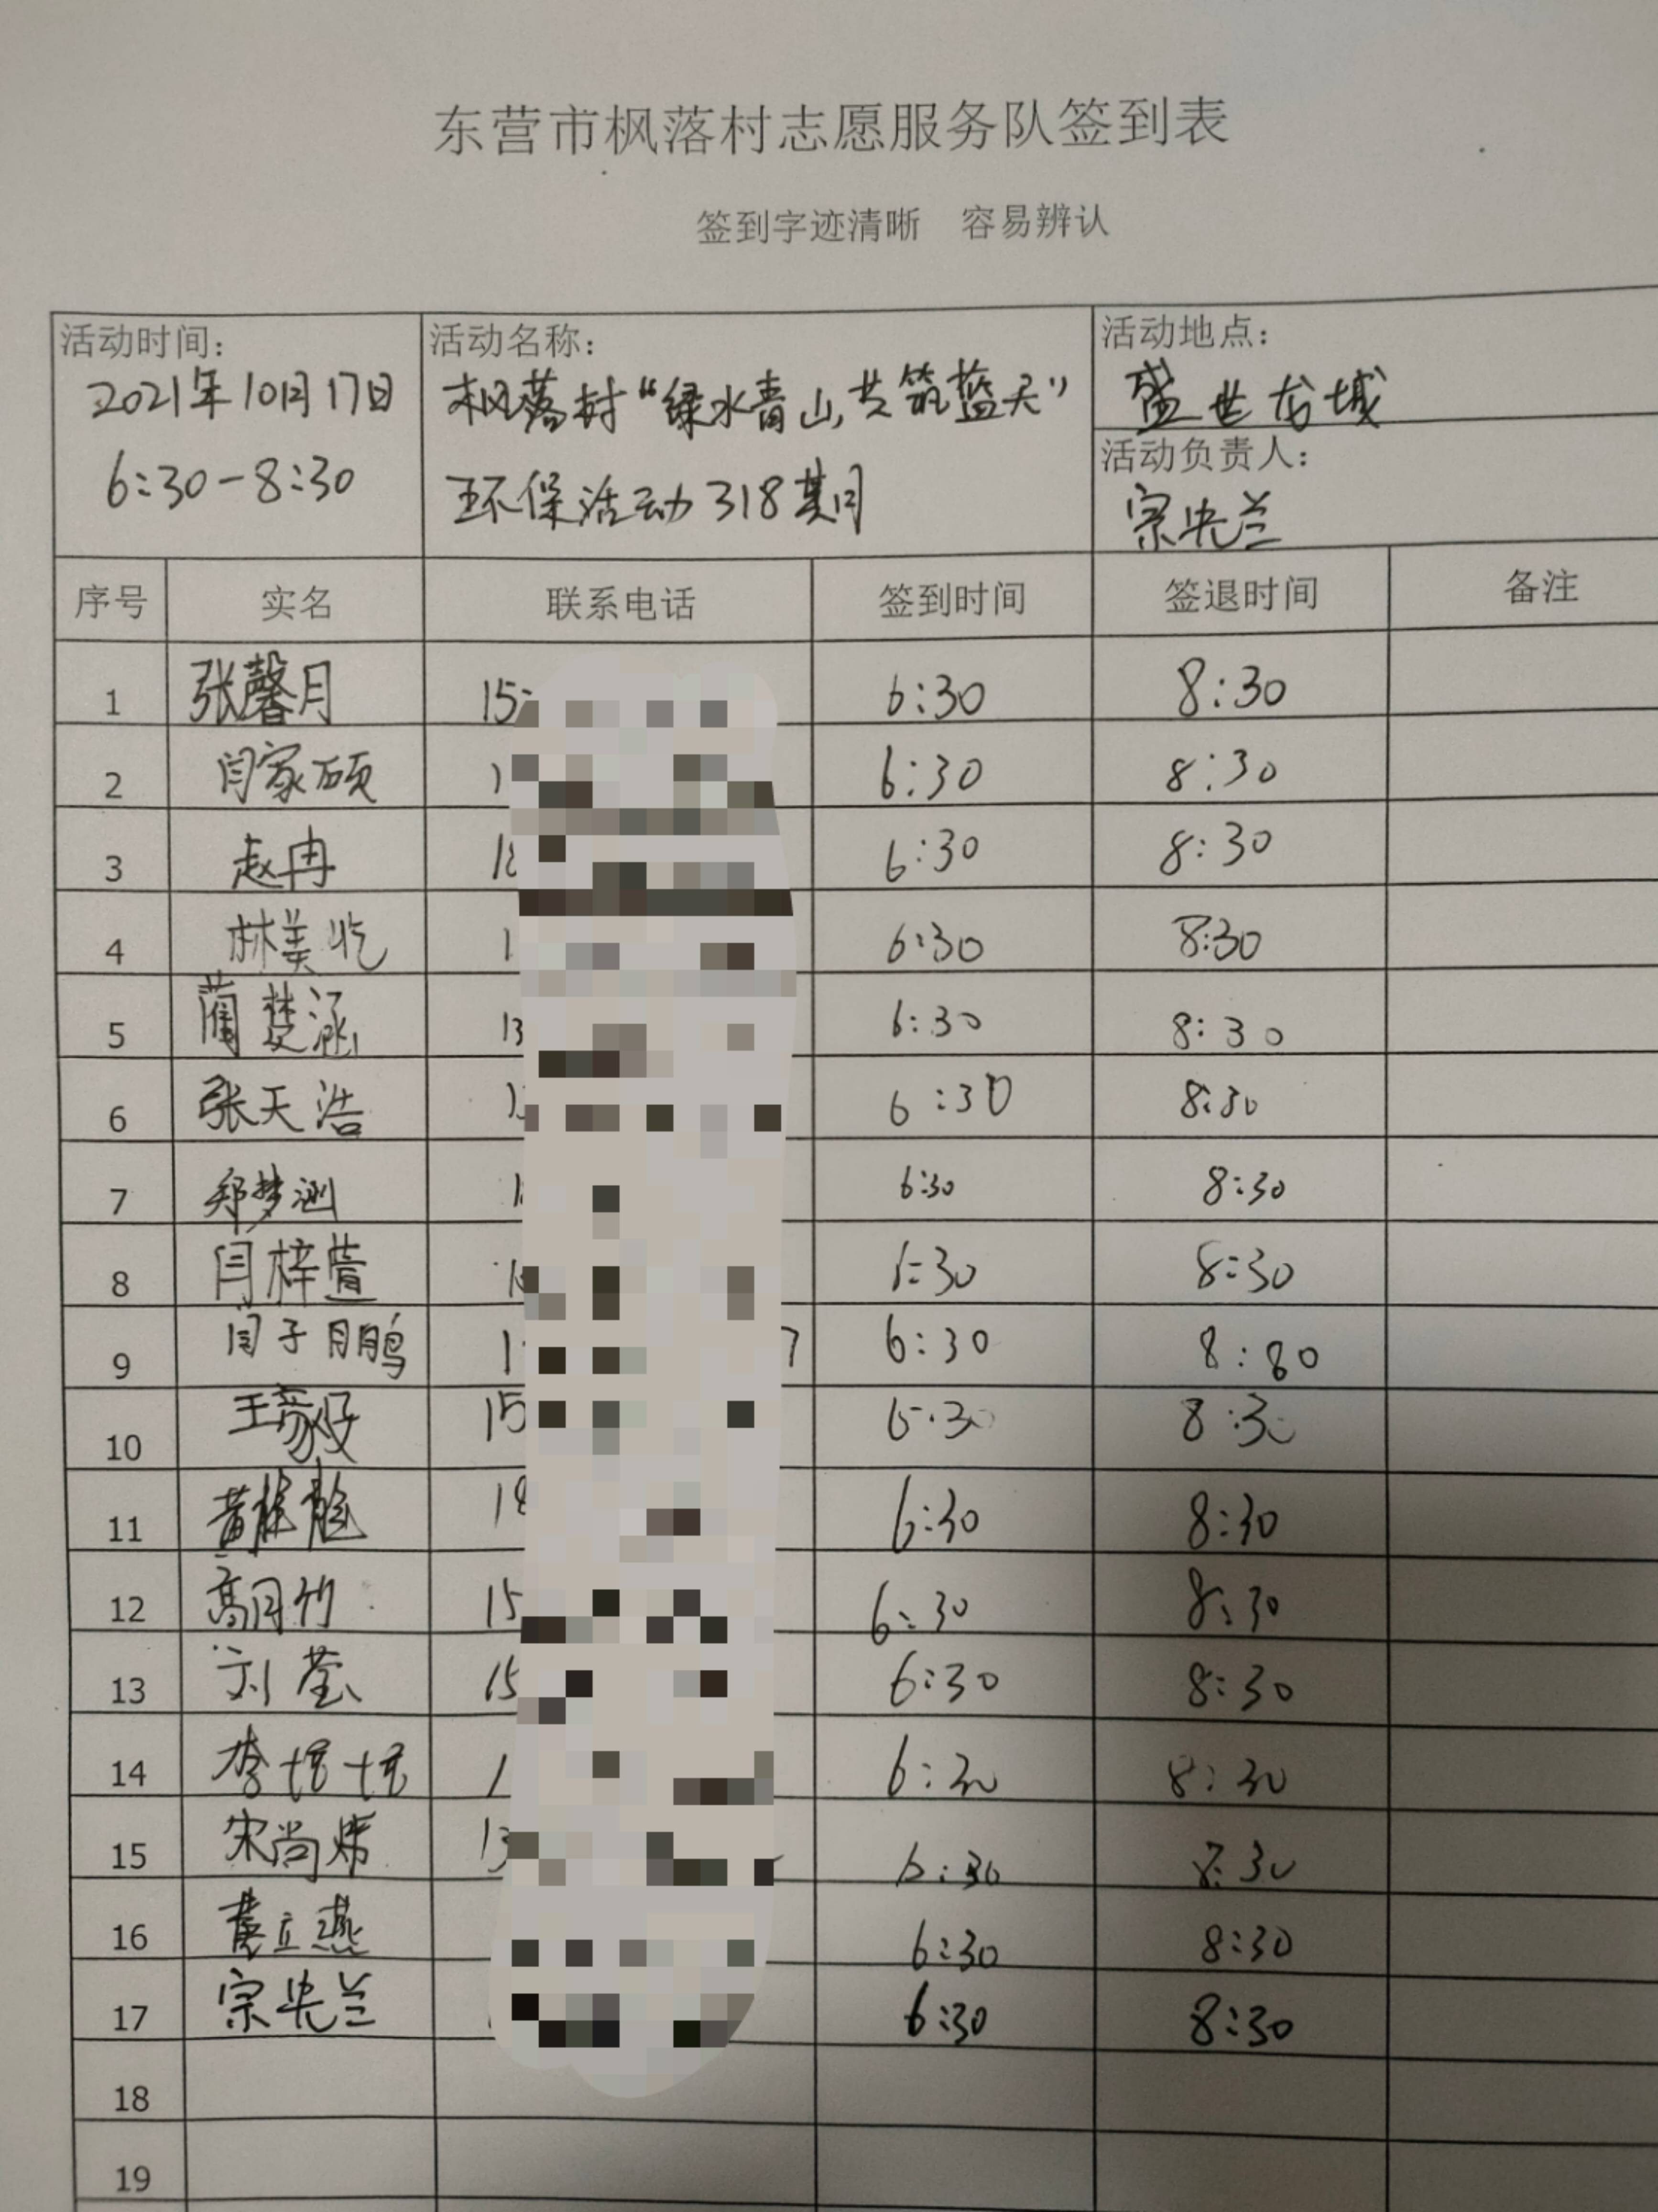 东营市枫落村志愿服务队签到表
签到字迹清晰 容易辨认
活动时间： 活动名称： 活动地点：
2021年10月17日 枫落村“绿水青山,共筑蓝天” 盛世龙城
6:30-8:30 环保活动318期 活动负责人：
宗央兰
序号 实名 联系电话 签到时间 签退时间 备注
1 张馨月 15 6:30 8:30
2 闫家硕 1 6:30 8:30
3 赵冉 18 6:30 8:30
4 林美屹 1 6:30 8:30
5 蔺楚涵 13 6:30 8:30
6 张天浩 1 6:30 8:30
7 郑梦涵 1 6:30 8:30
8 闫梓萱 1 6:30 8:30
9 闫子鹏 1 7 6:30 8:80
10 王 15 6:30 8:30
11 黄 18 6:30 8:30
12 高月竹 15 6:30 8:30
13 刘莹 15 6:30 8:30
14 李培培 1 6:30 8:30
15 宋尚炜 13 6:30 8:30
16 立燕 6:30 8:30
17 宗央兰 6:30 8:30
18
19